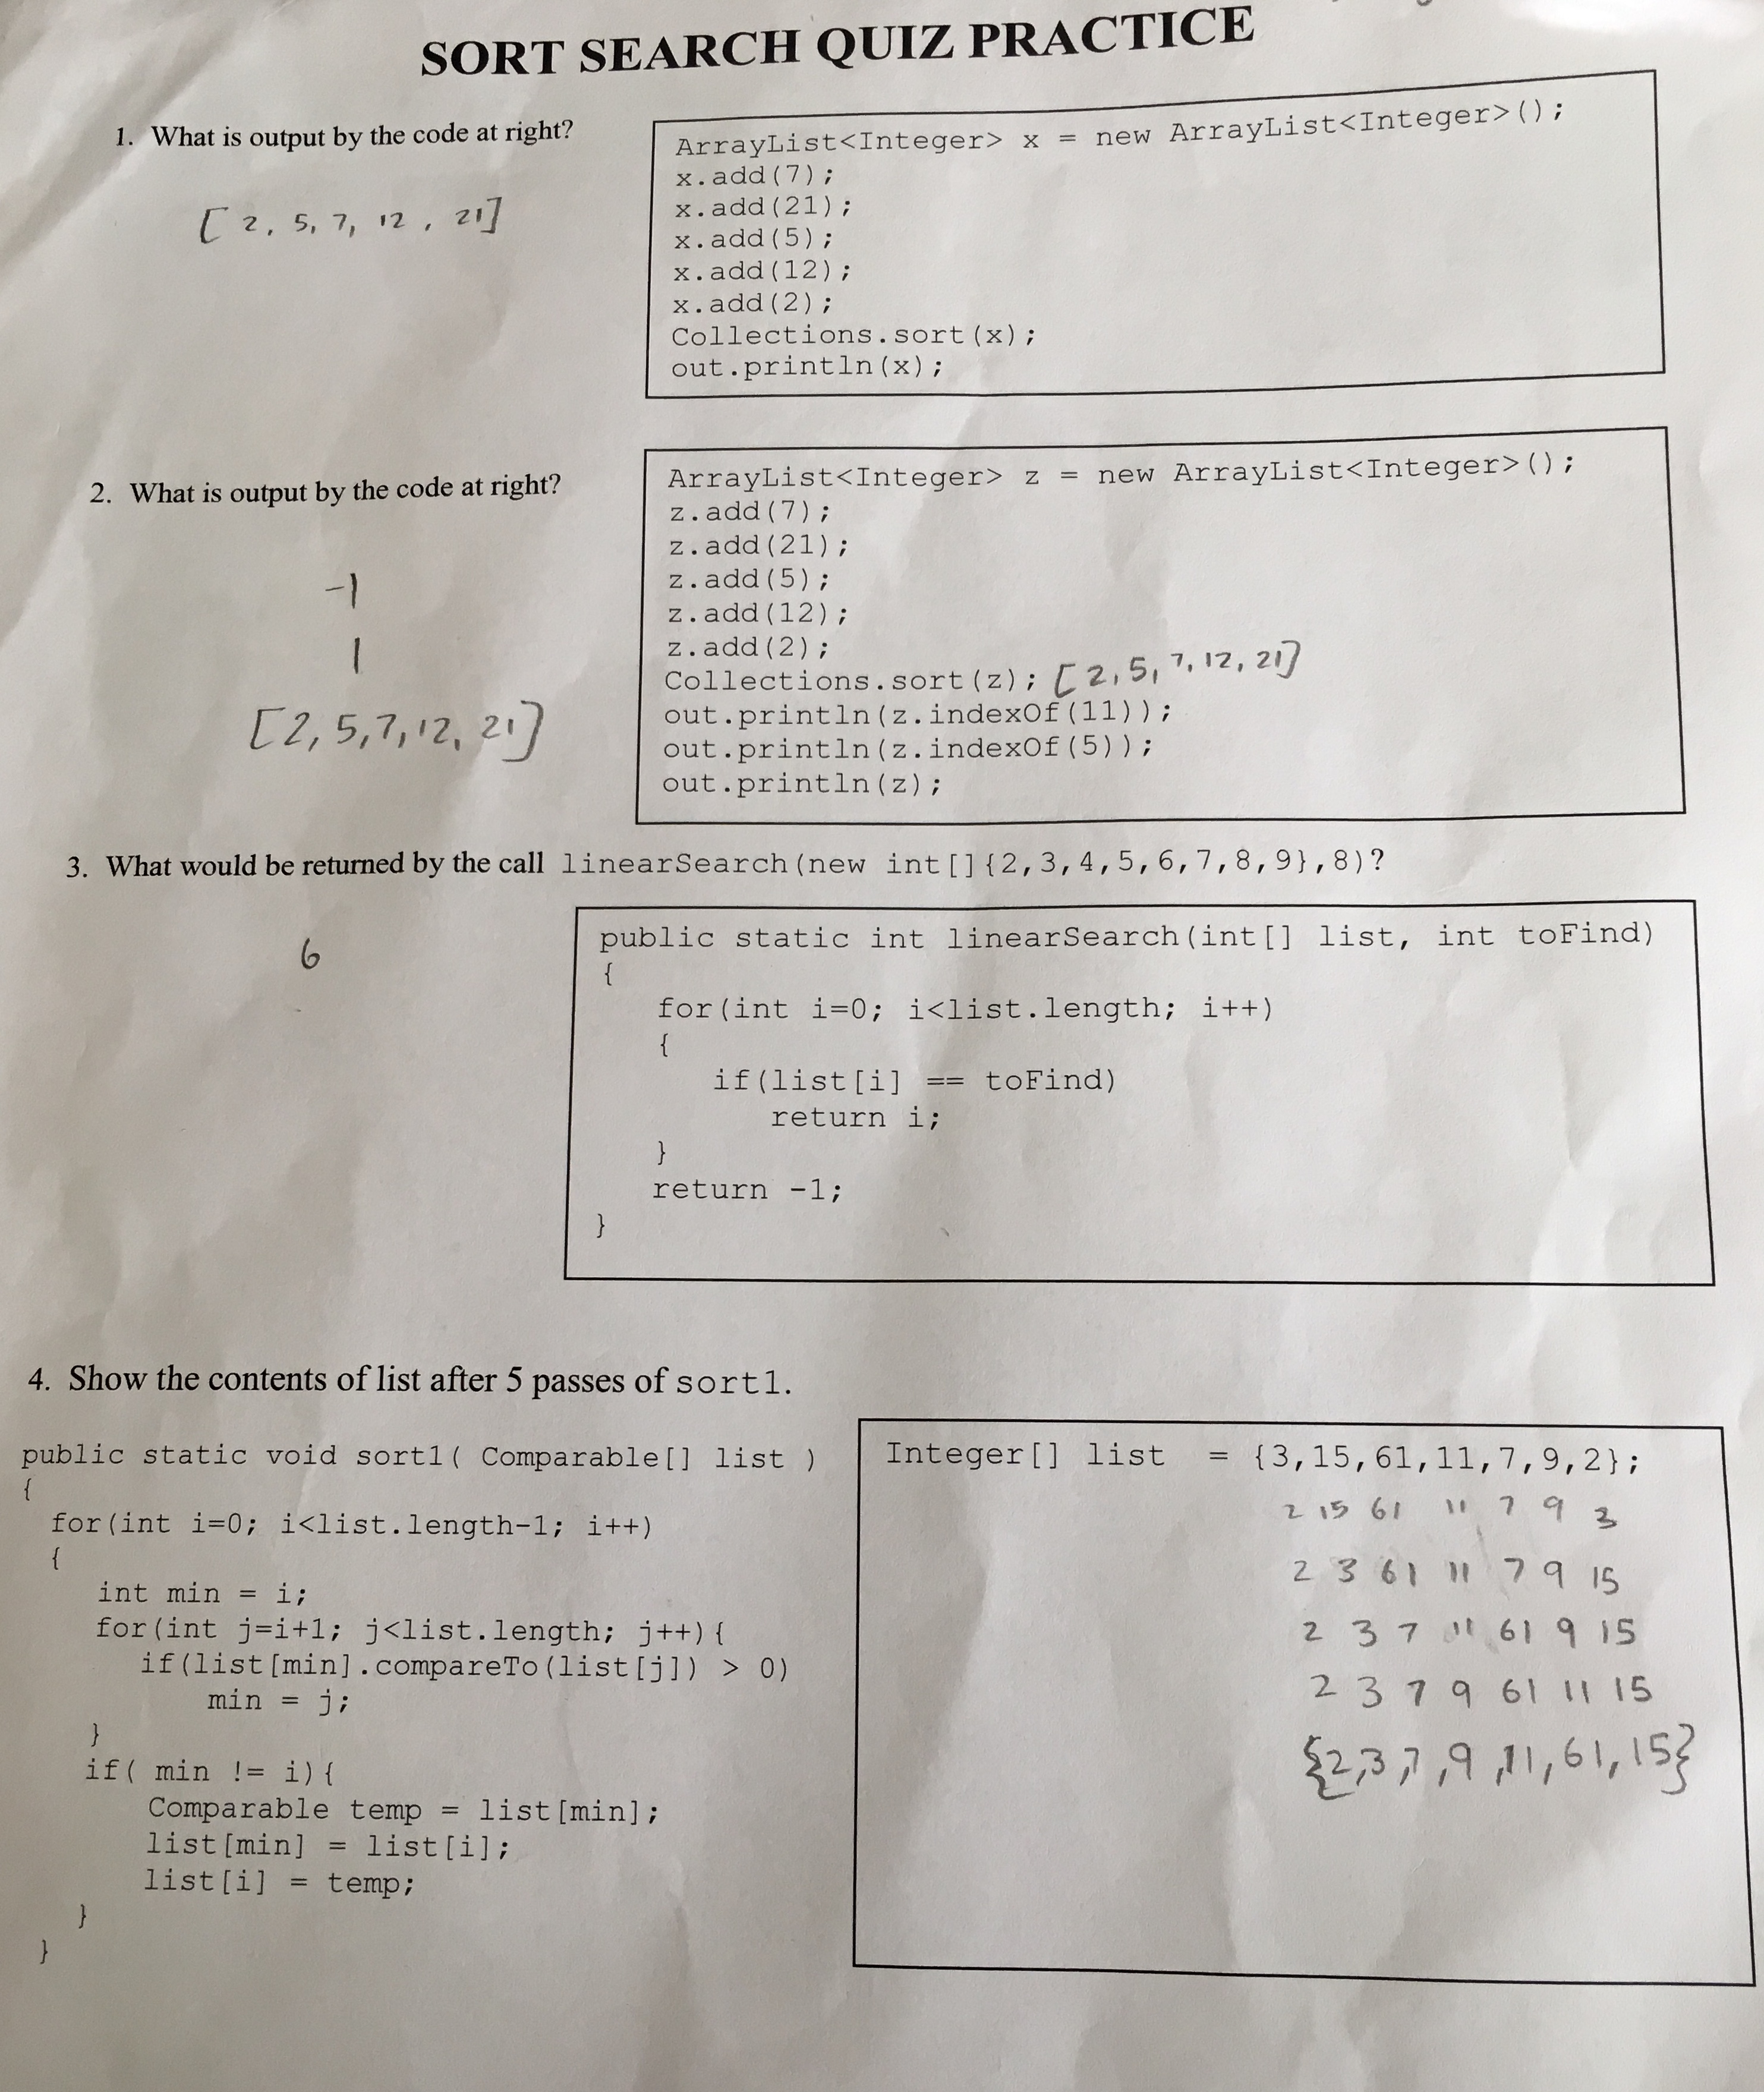 SORT SEARCH QUIZ PRACTICE
1. What is output by the code at right?
[ 2, 5, 7, 12, 21]
ArrayList<Integer> x = new ArrayList<Integer>();
x.add(7);
x.add(21);
x.add(5);
x.add(12);
x.add(2);
Collections.sort(x);
out.println(x);
2. What is output by the code at right?
-1
1
[2, 5, 7, 12, 21]
ArrayList<Integer> z = new ArrayList<Integer>();
z.add(7);
z.add(21);
z.add(5);
z.add(12);
z.add(2);
Collections.sort(z); [2, 5, 7, 12, 21]
out.println(z.indexOf(11));
out.println(z.indexOf(5));
out.println(z);
3. What would be returned by the call linearSearch(new int[]{2,3,4,5,6,7,8,9},8)?
6
public static int linearSearch(int[] list, int toFind)
{
for(int i=0; i<list.length; i++)
{
if(list[i] == toFind)
return i;
}
return -1;
}
4. Show the contents of list after 5 passes of sort1.
public static void sort1( Comparable[] list )
{
for(int i=0; i<list.length-1; i++)
{
int min = i;
for(int j=i+1; j<list.length; j++){
if(list[min].compareTo(list[j]) > 0)
min = j;
}
if( min != i){
Comparable temp = list[min];
list[min] = list[i];
list[i] = temp;
}
}
Integer[] list = {3,15,61,11,7,9,2};
2 15 61 11 7 9 3
2 3 61 11 7 9 15
2 3 7 11 61 9 15
2 3 7 9 61 11 15
{2,3,7,9,11,61,15}